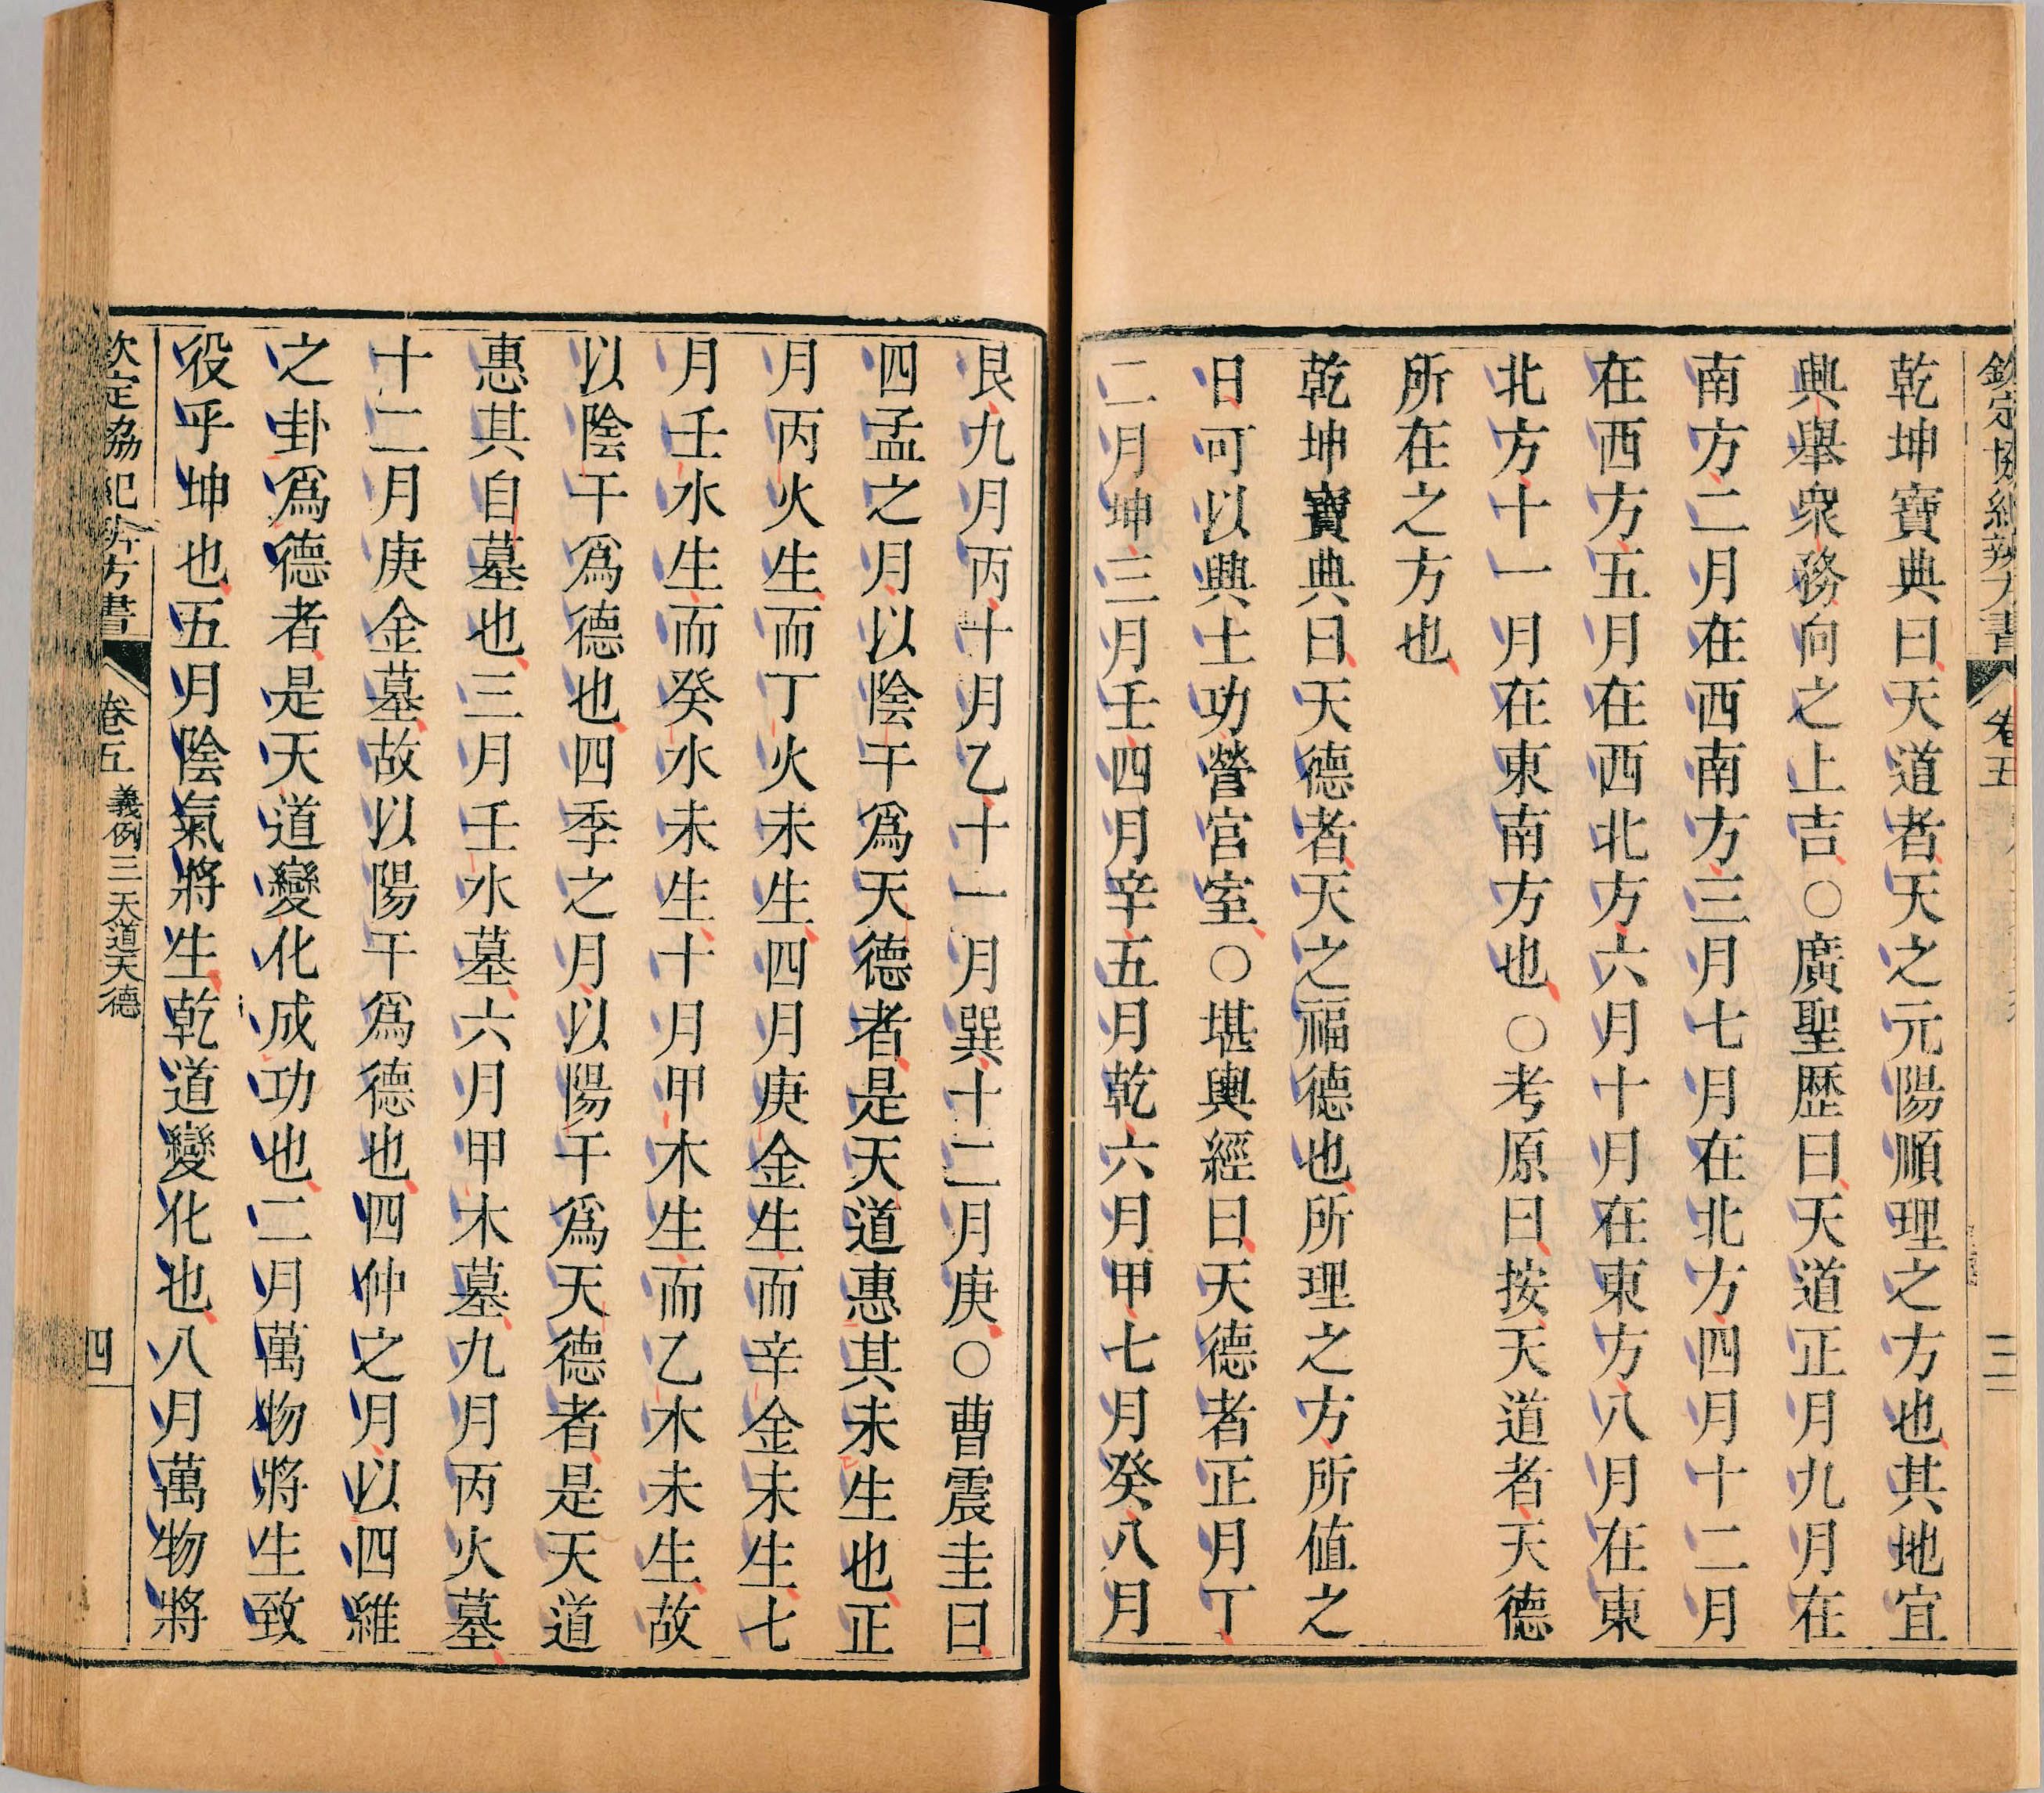 欽定協紀辨方書 卷五 三
乾坤寶典曰天道者天之元陽順理之方也其地宜
興舉衆務向之上吉○廣聖歴曰天道正月九月在
南方二月在西南方三月七月在北方四月十二月
在西方五月在西北方六月十月在東方八月在東
北方十一月在東南方也○考原曰按天道者天德
所在之方也
乾坤寶典曰天德者天之福德也所理之方所值之
日可以興土功營宮室○堪輿經曰天德者正月丁
二月坤三月壬四月辛五月乾六月甲七月癸八月
艮九月丙十月乙十一月巽十二月庚○曹震圭曰
四孟之月以陰干爲天德者是天道惠其未生也正
月丙火生而丁火未生四月庚金生而辛金未生七
月壬水生而癸水未生十月甲木生而乙木未生故
以陰干爲德也四季之月以陽干爲天德者是天道
惠其自墓也三月壬水墓六月甲木墓九月丙火墓
十二月庚金墓故以陽干爲德也四仲之月以四維
之卦爲德者是天道變化成功也二月萬物將生致
役乎坤也五月陰氣將生乾道變化也八月萬物將
欽定協紀辨方書 卷五 義例三 天道天德 四